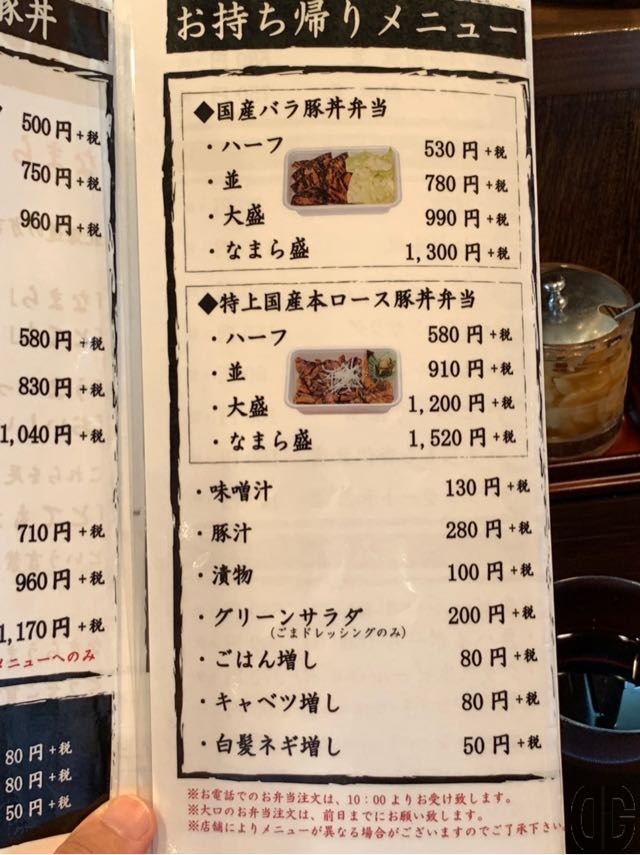 豚丼
500円+税
750円+税
960円+税
580円+税
830円+税
1,040円+税
710円+税
960円+税
1,170円+税
メニューへのみ
80円+税
80円+税
50円+税
お持ち帰りメニュー
◆国産バラ豚丼弁当
・ハーフ 530円+税
・並 780円+税
・大盛 990円+税
・なまら盛 1,300円+税
◆特上国産本ロース豚丼弁当
・ハーフ 580円+税
・並 910円+税
・大盛 1,200円+税
・なまら盛 1,520円+税
・味噌汁 130円+税
・豚汁 280円+税
・漬物 100円+税
・グリーンサラダ 200円+税
(ごまドレッシングのみ)
・ごはん増し 80円+税
・キャベツ増し 80円+税
・白髪ネギ増し 50円+税
※お電話でのお弁当注文は、10:00よりお受け致します。
※大口のお弁当注文は、前日までにお願い致します。
※店舗によりメニューが異なる場合がございますのでご了承下さい